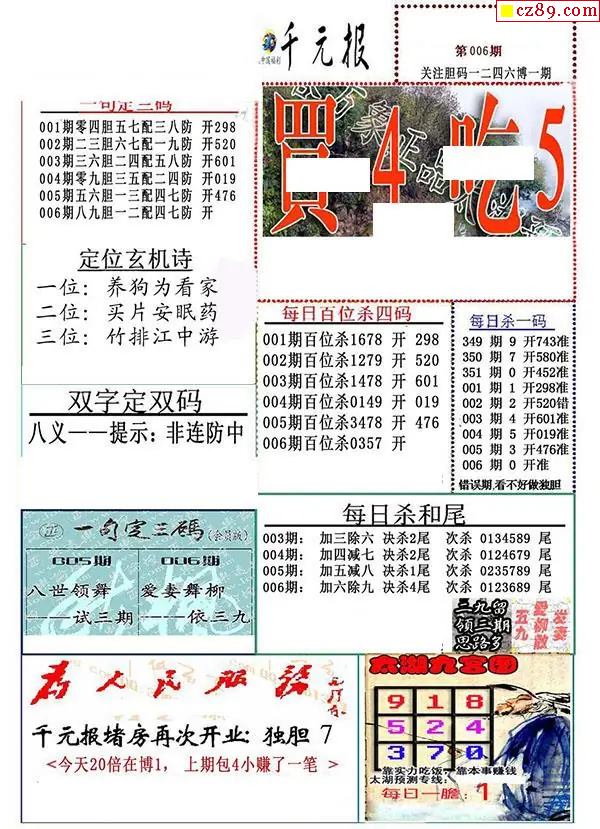 cz89.com
千元报
第006期
关注胆码一二四六博一期
一句定三码
001期零四胆五七配三八防 开298
002期二三胆六七配一九防 开520
003期三六胆二四配五八防 开601
004期零九胆三五配二四防 开019
005期五六胆一三配四七防 开476
006期八九胆一二配四七防 开
買4吃5
定位玄机诗
一位：养狗为看家
二位：买片安眠药
三位：竹排江中游
每日百位杀四码
001期百位杀1678 开 298
002期百位杀1279 开 520
003期百位杀1478 开 601
004期百位杀0149 开 019
005期百位杀3478 开 476
006期百位杀0357 开
每日杀一码
349 期 9 开743准
350 期 7 开580准
351 期 0 开452准
001 期 1 开298准
002 期 2 开520错
003 期 4 开601准
004 期 5 开019准
005 期 3 开476准
006 期 0 开准
错误期,看不好做独胆
双字定双码
八义——提示：非连防中
每日杀和尾
003期： 加三除六 决杀2尾 次杀 0134589 尾
004期： 加四减七 决杀2尾 次杀 0124679 尾
005期： 加五减八 决杀1尾 次杀 0235789 尾
006期： 加六除九 决杀4尾 次杀 0123689 尾
一句定三碼(会员版)
005期 006期
八世领舞 爱妻舞柳
——试三期 ——依三九
三九留
领三期
思路多
五九
爱柳散
发妻
为人民服务
千元报堵房再次开业：独胆 7
<今天20倍在博1， 上期包4小赚了一笔 >
太湖九宫图
9 1 8
5 2 4
3 7 0
靠实力吃饭 靠本事赚钱
太湖预测专线:
每日一胆: 1